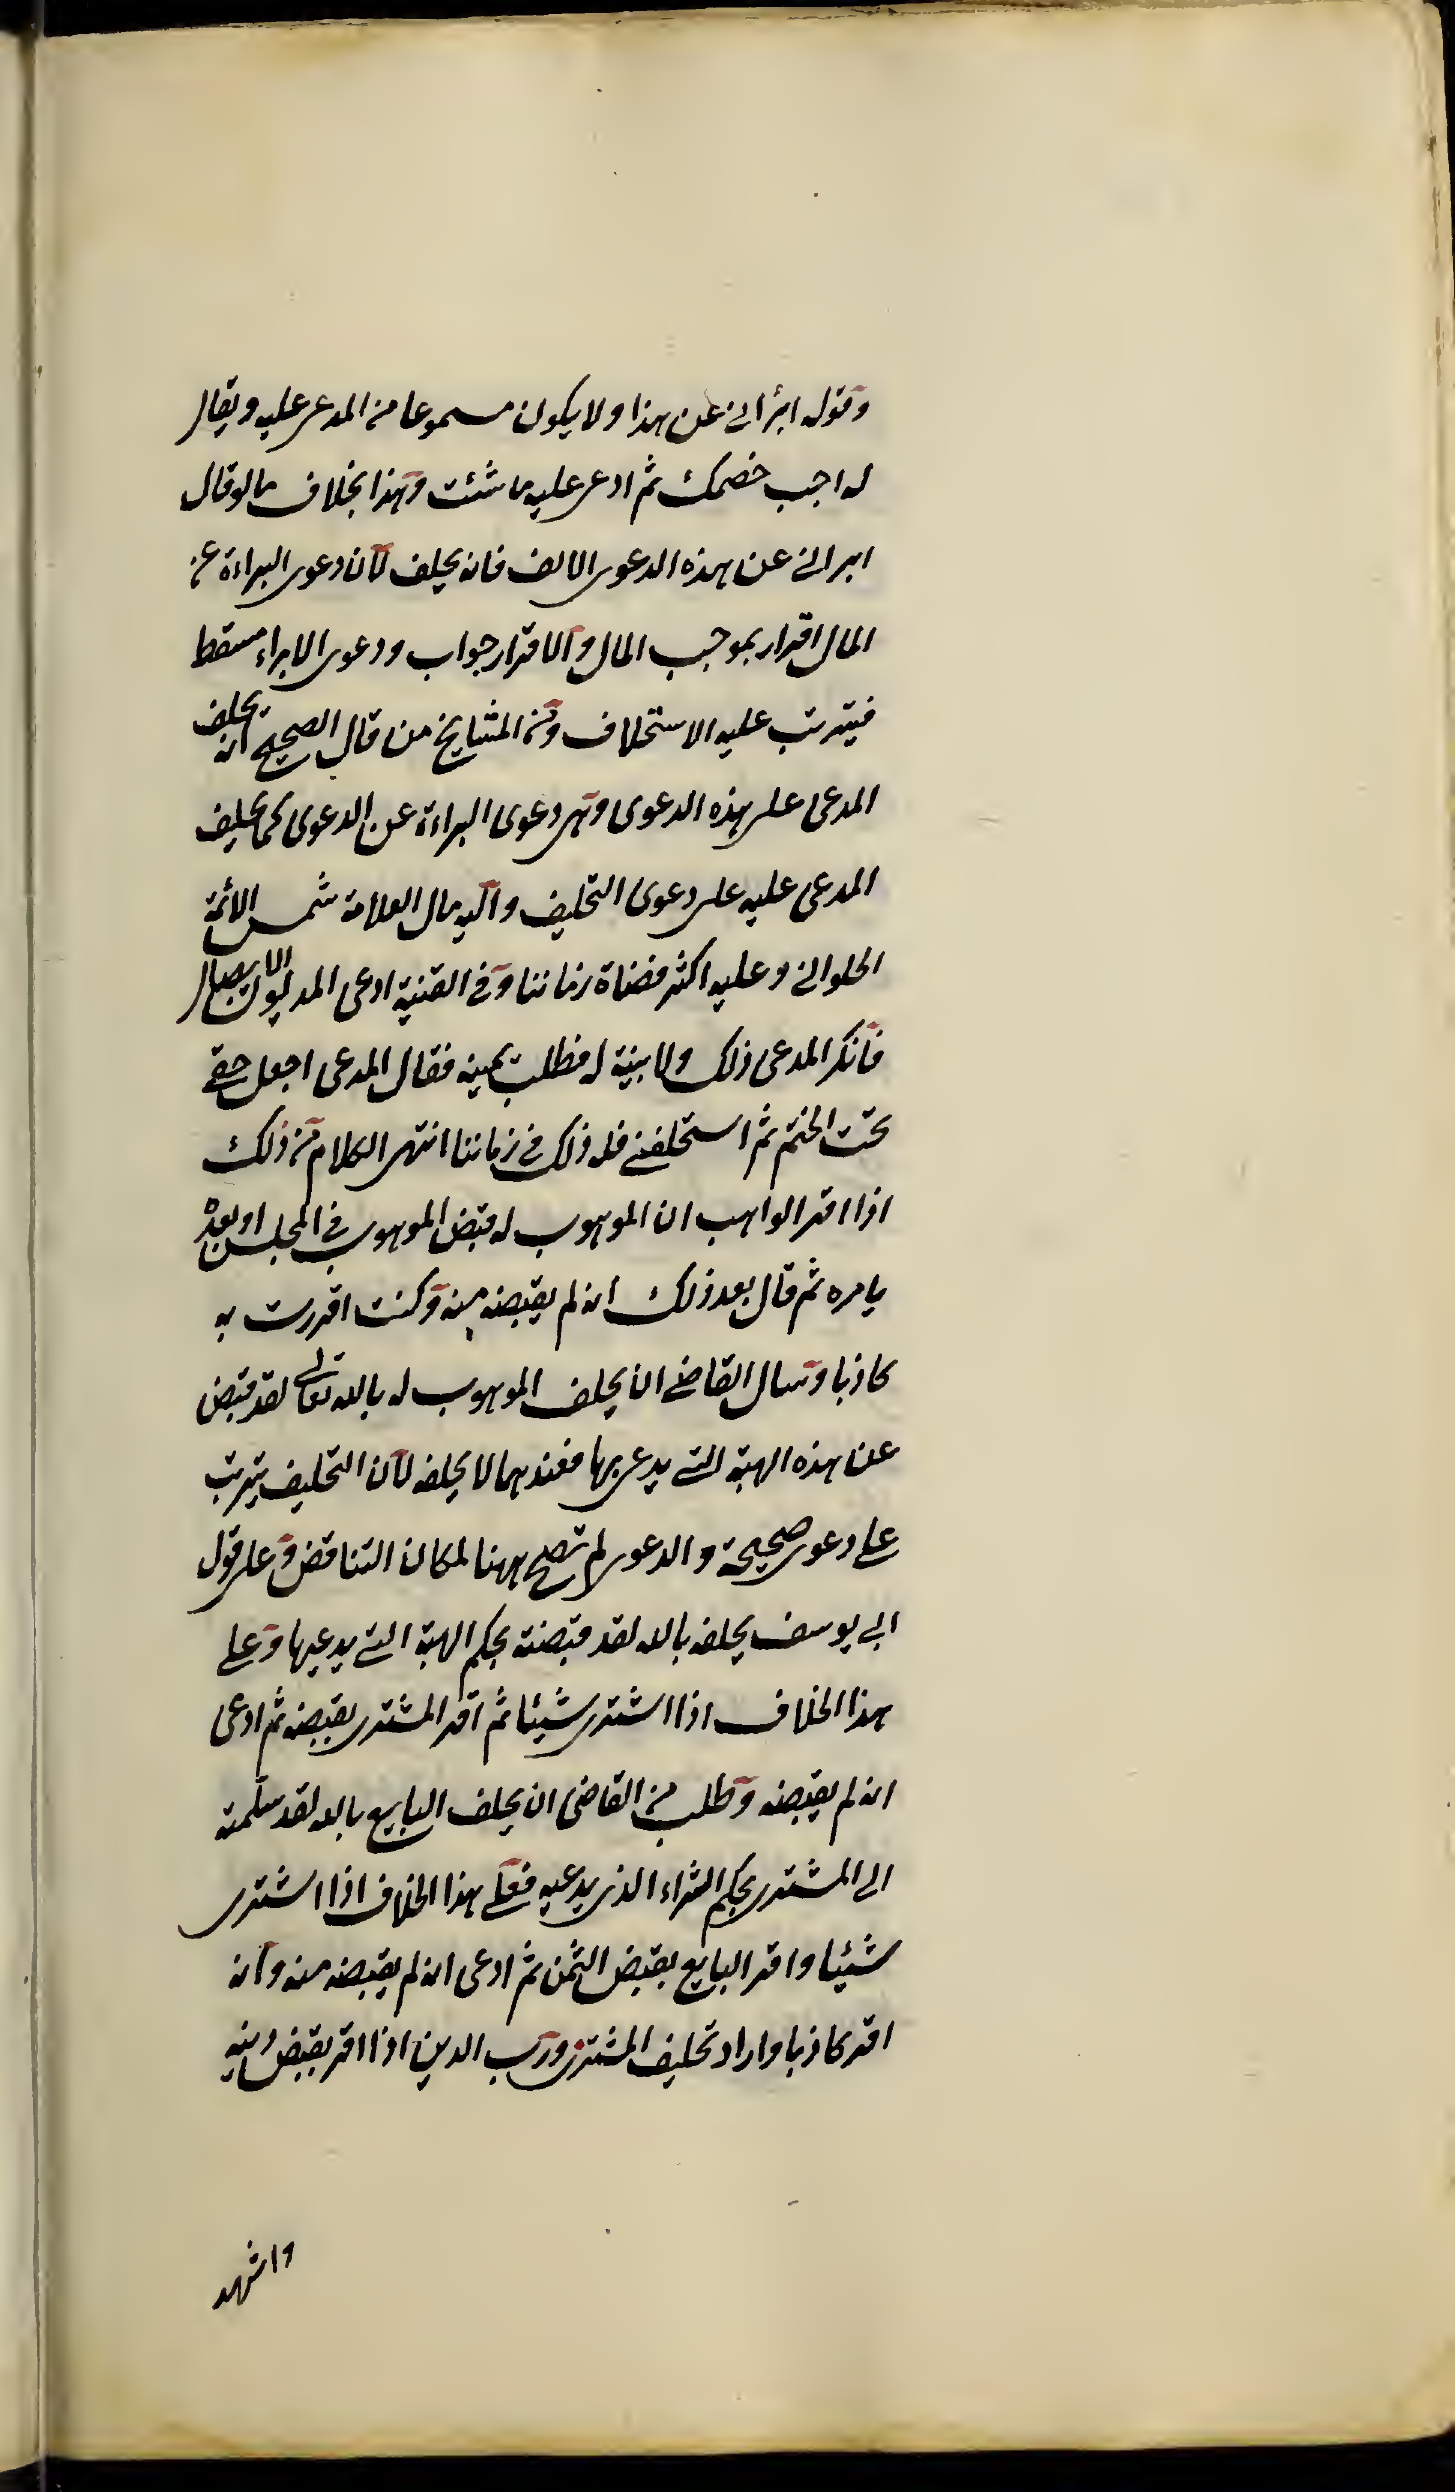 وقوله ابرأنى عن هذا ولا يكون مسموعا من المدعى عليه ويقال
له اجب خصمك ثم ادعى عليه ما شئت وهذا بخلاف ما لو قال
ابرانى عن هذه الدعوى الالف فانه يحلف لان دعوى البراءة عن
المال اقرار بموجب المال والاقرار جواب ودعوى الابراء مسقط
فيترتب عليه الاستحلاف ومن المشايخ من قال الصحيح انه يحلف
المدعى على هذه الدعوى وهى دعوى البراءة عن الدعوى كما يحلف
المدعى عليه على دعوى التحليف واليه مال العلامة شمس الائمة
الحلوانى وعليه اكثر قضاة زماننا وفى القنية ادعى المديون الايصال
فانكر المدعى ذلك ولا بينة له فطلب يمينه فقال المدعى اجعل حقى
تحت الختم ثم استحلفنى فله ذلك فى زماننا انتهى الكلام من ذلك
اذا اقر الواهب ان الموهوب له قبض الموهوب فى المجلس او بعده
بامره ثم قال بعد ذلك انه لم يقبضه منه وكنت اقررت به
كاذبا وسال القاضى ان يحلف الموهوب له بالله تعالى لقد قبض
عن هذه الهبة التى يدعى بها فعندهما لا يحلفه لان التحليف يترتب
على دعوى صحيحة والدعوى لم تصح ههنا لمكان التناقض وعلى قول
ابى يوسف يحلفه بالله لقد قبضته بحكم الهبة التى يدعيها وعلى
هذا الخلاف اذا اشترى شيئا ثم اقر المشترى بقبضه ثم ادعى
انه لم يقبضه وطلب من القاضى ان يحلف البايع بالله لقد سلمته
الى المشترى بحكم الشراء الذى يدعيه فعلى هذا الخلاف اذا اشترى
شيئا واقر البايع بقبض الثمن ثم ادعى انه لم يقبضه منه وانه
اقر كاذبا واراد تحليف المشترى ورب الدين اذا اقر بقبض دينه
واشهد